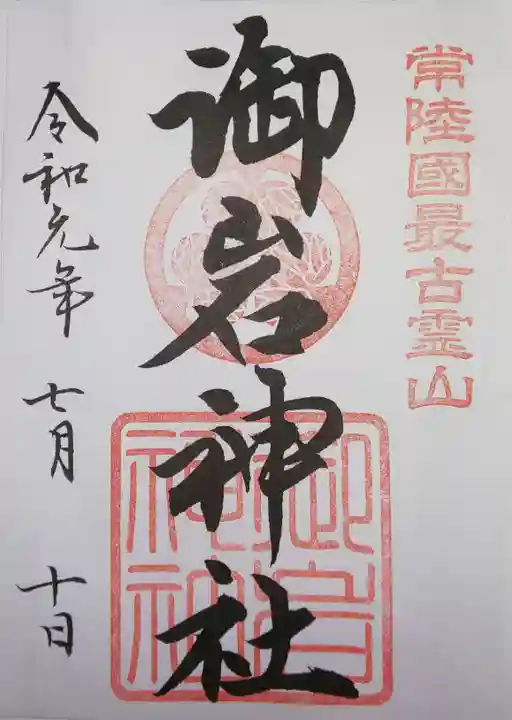 常陸國最古霊山
御岩神社
御岩神社
令和元年 七月 十日